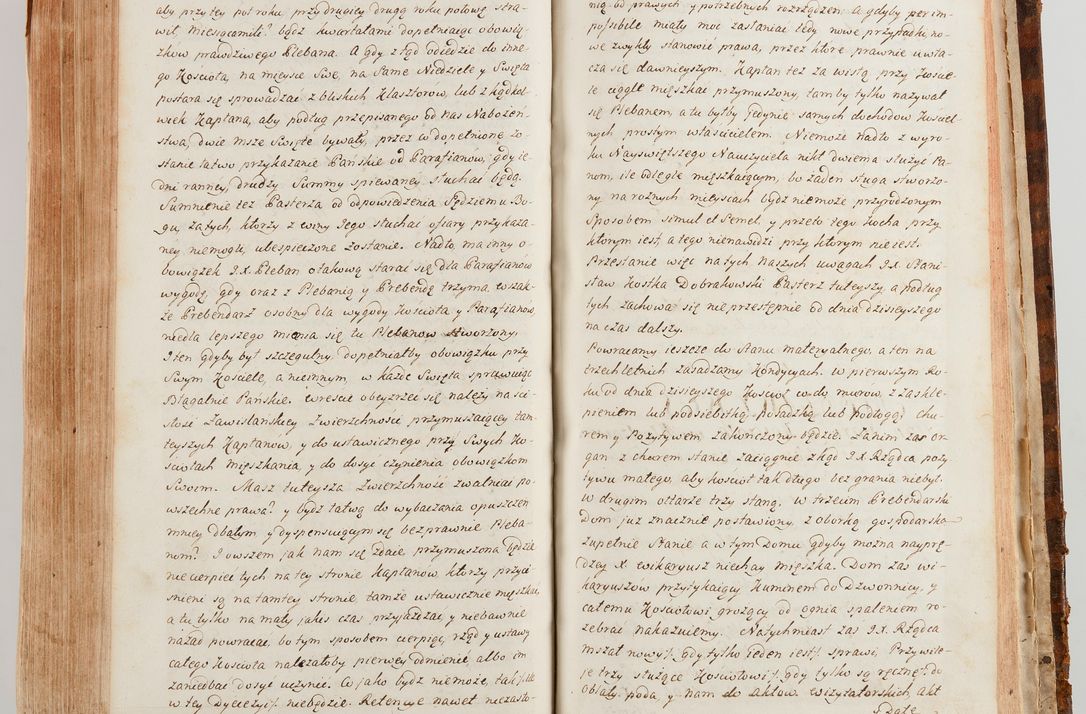 aby przy tey pół roku przy drugiey drugą roku połowę stra-
wił miesiącami? bądź kwartałami dopełniaiąc obowią-
zków prawdziwego Plebana. A gdy ztąd odiedzie do inne-
go Kościoła, na mieysce swe, na same Niedziele y Święta
postara się sprowadzać z bliskich Klasztorow, lub zkądkol-
wiek Kapłana, aby podług przepisanego od nas Nabożeń-
stwa, dwie msze Święte bywały, przez co dopełnione zo-
stanie łatwo przykazanie Pańskie od Parafianów, gdy ie-
dni ranney, drudzy Summy spiewaney słuchać będą.
Sumnienie też Pasterza od odpowiedzenia Sędziemu Bo-
gu, za tych, ktorzy z winy Jego słuchać ofiary przykaza-
ney niemogli, ubespieczone zostanie. Nadto, ma inny o-
bowiązek JX. Pleban o takową starać się dla Parafianów
wygodę, gdy oraz z Plebanią y Prebendę trzyma, wszak-
że Prebendarz osobny dla wygody Kościoła y Parafianów,
niedla lepszego mienia się tu Plebanow stworzony.
I ten gdyby był szczegulny, dopełniałby obowiązku przy
Swym Kościele, a nieinnym, w każde Święta sprawuiąc
Błagalnie Pańskie. Wreście obeyrzeć się należy na sci-
słość Zawiślańskiey Zwierzchności przymuszaiącey tam-
teyszych Kapłanow, y do ustawicznego przy Swych Ko-
sciołach mięszkania, y do dosyć czynienia obowiązkom
Swoim. Masz tuteysza Zwierzchność zwalniać po-
wszechne prawa? y bydź łatwą do wybaczania opuszczen
mniey dbałym y dyspensuiącym się bezprawnie Pleba-
nom? I owszem jak nam się zdaie przymuszona będzie
niecierpieć tych na tey stronie Kapłanow, ktorzy przyci-
snieni są na tamtey stronie, tamże ustawicznie mięszkać,
a tu tylko na mały jakis czas przyjażdżać y niebawnie
nazad powracać, bo tym sposobem cierpiąc, rząd y ustawy
całego Kościoła należałoby pierwey odmienić, albo im
zaniedbać dosyć uczynić. Co jako bydź niemoże, tak
w tey Dyecezyi niebędzie. Retencye nawet niezasło-
nią od prawych y potrzebnych rozrządzen. A gdyby per im-
possibile miały moc zasłaniać tedy nowe przypadki no-
we zwykły stanowić prawa, przez ktore prawnie uwła-
cza się dawnieyszym. Kapłan też za Wisłą przy Koście-
le ciągle mięszkać przymuszony, tamby tylko nazywał
się Plebanem, a tu byłby jedynie samych dochodow Kościel-
nych prostym właścicielem. Niemoże nadto z wyro-
ku Nayświętszego Nauczyciela nikt dwiema służyć Pa-
nom, ile odlegle mięszkaiącym, bo żaden sługa stworzo-
ny na rożnych mieyscach bydz niemoże przyrodzonym
Sposobem simul et semel, y przeto tego kocha przy
ktorym iest, a tego nienawidzi przy ktorym nieiest.
Przestanie więc na tych naszych uwagach JX. Stani-
sław Kostka Dobrakowski Pasterz tuteyszy, a podług
tych zachowa się nieprzestępnie od dnia dzisieyszego
na czas dalszy.
Powracamy ieszcze do Stanu materyalnego, a ten na
trzechletnich zasadzamy Kondycyach. w pierwszym Ro-
ku od dnia dzisieyszego Kościoł co do murow, z zaskle-
pieniem lub podsiebitką, posadzką lub podłogą, cho-
rem y Pozytywem zakończony będzie. Zanim zaś or-
gan z chorem stanie zaciągnie zkąd JX Rządca pozy-
tywu małego, aby kościoł tak długo bez grania niebył.
W drugim ołtarze trzy staną. w trzecim Prebendarski
Dom już znacznie postawiony z oborką gospodarska
zupełnie stanie, a w tym Domu gdyby można nayprę-
dzey X. wikaryusz niechay mięszka. Dom zas wi-
karyuszów przytykaiący Kominem do Dzwonnicy, y
całemu Kościołowi grożący od ognia spaleniem ro-
zebrać nakazuiemy. Natychmiast zaś JX. Rządca
mszał nowy, gdy tylko ieden iest, sprawi, Przywile-
je trzy służące Kościołowi, gdy tylko są ręczne, do
Oblaty poda, y nam do aktow wizytatorskich, akt
Date